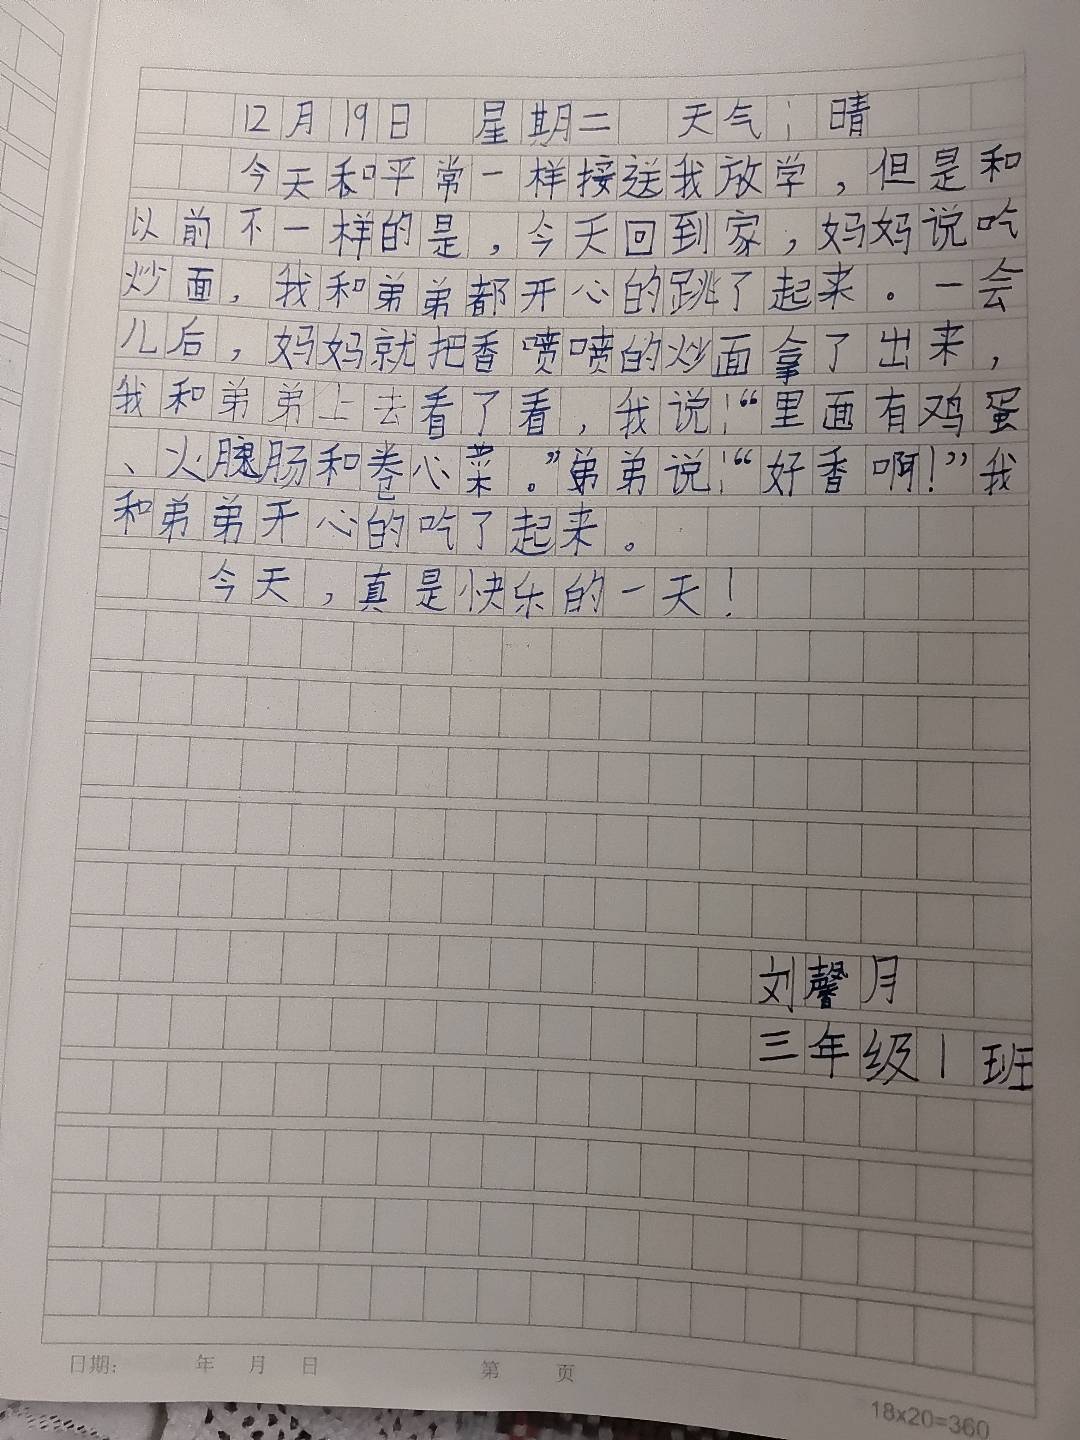 12月19日 星期二 天气：晴
今天和平常一样接送我放学，但是和
以前不一样的是，今天回到家，妈妈说吃
炒面，我和弟弟都开心的跳了起来。一会
儿后，妈妈就把香喷喷的炒面拿了出来，
我和弟弟上去看了看，我说：“里面有鸡蛋
、火腿肠和卷心菜。”弟弟说：“好香啊！”我
和弟弟开心的吃了起来。
今天，真是快乐的一天！
刘馨月
三年级1班
日期： 年 月 日 第 页
18x20=360